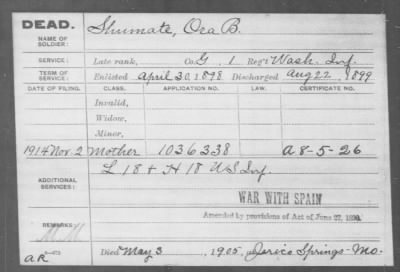 DEAD.
NAME OF SOLDIER: Shumate, Ora B.
SERVICE: Late rank, Co. G, 1 Reg't Wash. Inf.
TERM OF SERVICE: Enlisted April 30, 1898 Discharged Aug 22, 1899
DATE OF FILING. CLASS. APPLICATION NO. LAW. CERTIFICATE NO.
Invalid,
Widow,
Minor,
1914 Nov. 2 Mother 1036338 A-8-5-26
ADDITIONAL SERVICES: L 18 + H 18 U S Inf.
WAR WITH SPAIN
Amended by provisions of Act of June 27, 1890.
REMARKS:
Died May 3, 1905, Jerico Springs - Mo.
AR